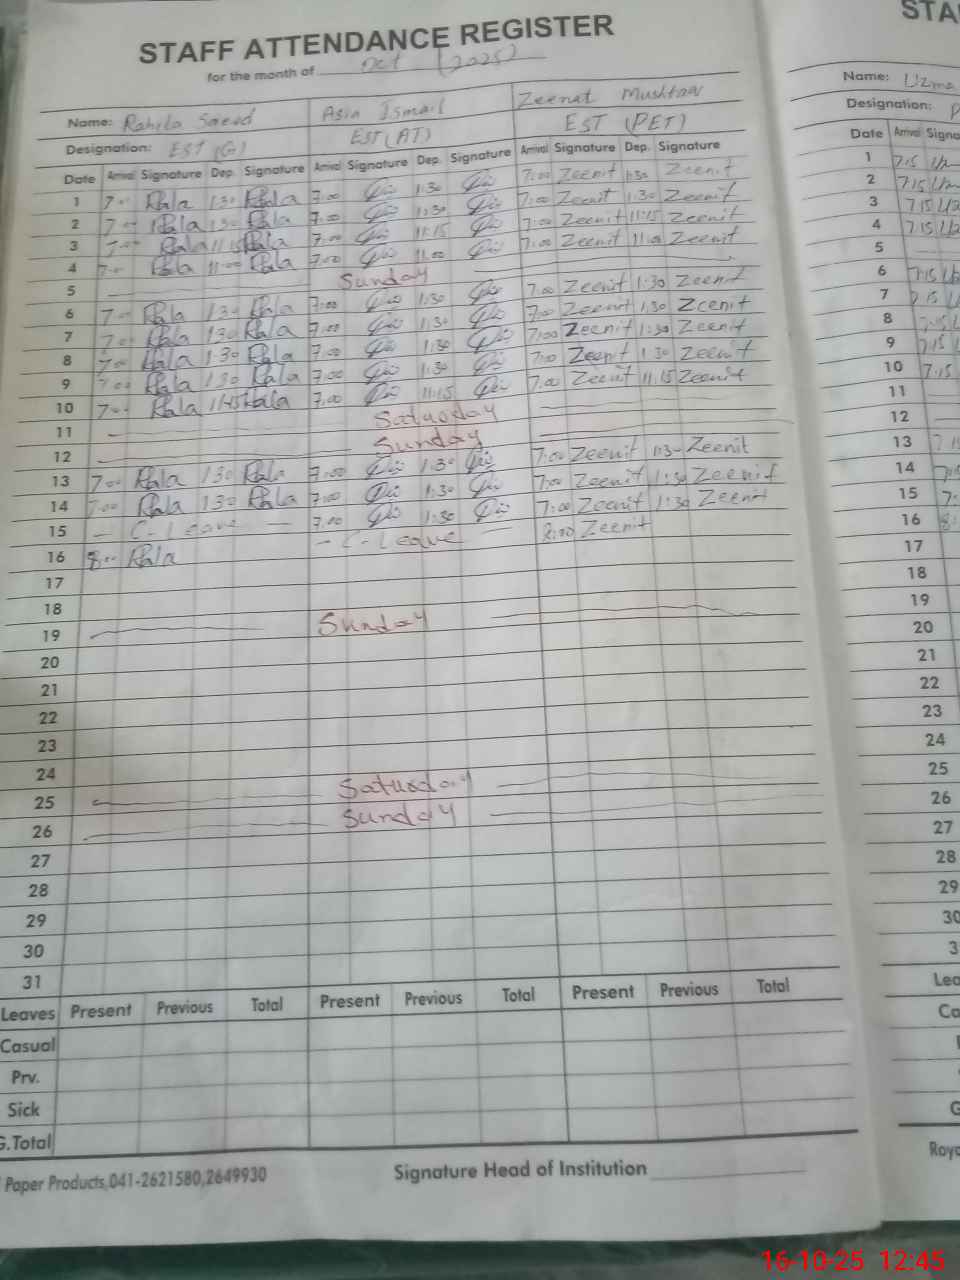 STAFF ATTENDANCE REGISTER
for the month of Oct (2025)
Name: Rahila Saeed Asia Ismail Zeenat Mushtaq
Designation: EST (G) EST (AT) EST (PET)
Date Arrival Signature Dep. Signature Arrival Signature Dep. Signature Arrival Signature Dep. Signature
1 7:00 1:30 7:00 1:30 7:00 Zeenit 1:30 Zeenit
2 7:00 1:30 7:00 1:30 7:00 Zeenit 1:30 Zeenit
3 7:00 11:15 7:00 11:15 7:00 Zeenit 11:15 Zeenit
4 7:00 11:00 7:00 11:00 7:00 Zeenit 11:00 Zeenit
5 Sunday
6 7:00 1:30 7:00 1:30 7:00 Zeenit 1:30 Zeenit
7 7:00 1:30 7:00 1:30 7:00 Zeenit 1:30 Zeenit
8 7:00 1:30 7:00 1:30 7:00 Zeenit 1:30 Zeenit
9 7:00 1:30 7:00 1:30 7:00 Zeenit 1:30 Zeenit
10 7:00 11:15 7:00 11:15 7:00 Zeenit 11:15 Zeenit
11 Saturday
12 Sunday
13 7:00 1:30 7:00 1:30 7:00 Zeenit 1:30 Zeenit
14 7:00 1:30 7:00 1:30 7:00 Zeenit 1:30 Zeenit
15 - C-Leave - 7:00 1:30 7:00 Zeenit 1:30 Zeenit
16 8:00 - C-Leave - 8:00 Zeenit
17
18
19 Sunday
20
21
22
23
24
25 Saturday
26 Sunday
27
28
29
30
31
Leaves Present Previous Total Present Previous Total Present Previous Total
Casual
Prv.
Sick
G.Total
Paper Products,041-2621580,2649930 Signature Head of Institution
STA
Name: Uzma
Designation:
Date Arrival Signa
1 7:15
2 7:15
3 7:15
4 7:15
5
6 7:15
7
8 7:15
9 7:15
10 7:15
11
12
13
14
15
16
17
18
19
20
21
22
23
24
25
26
27
28
29
30
3
Lea
Ca
G
Roya
16-10-25 12:45